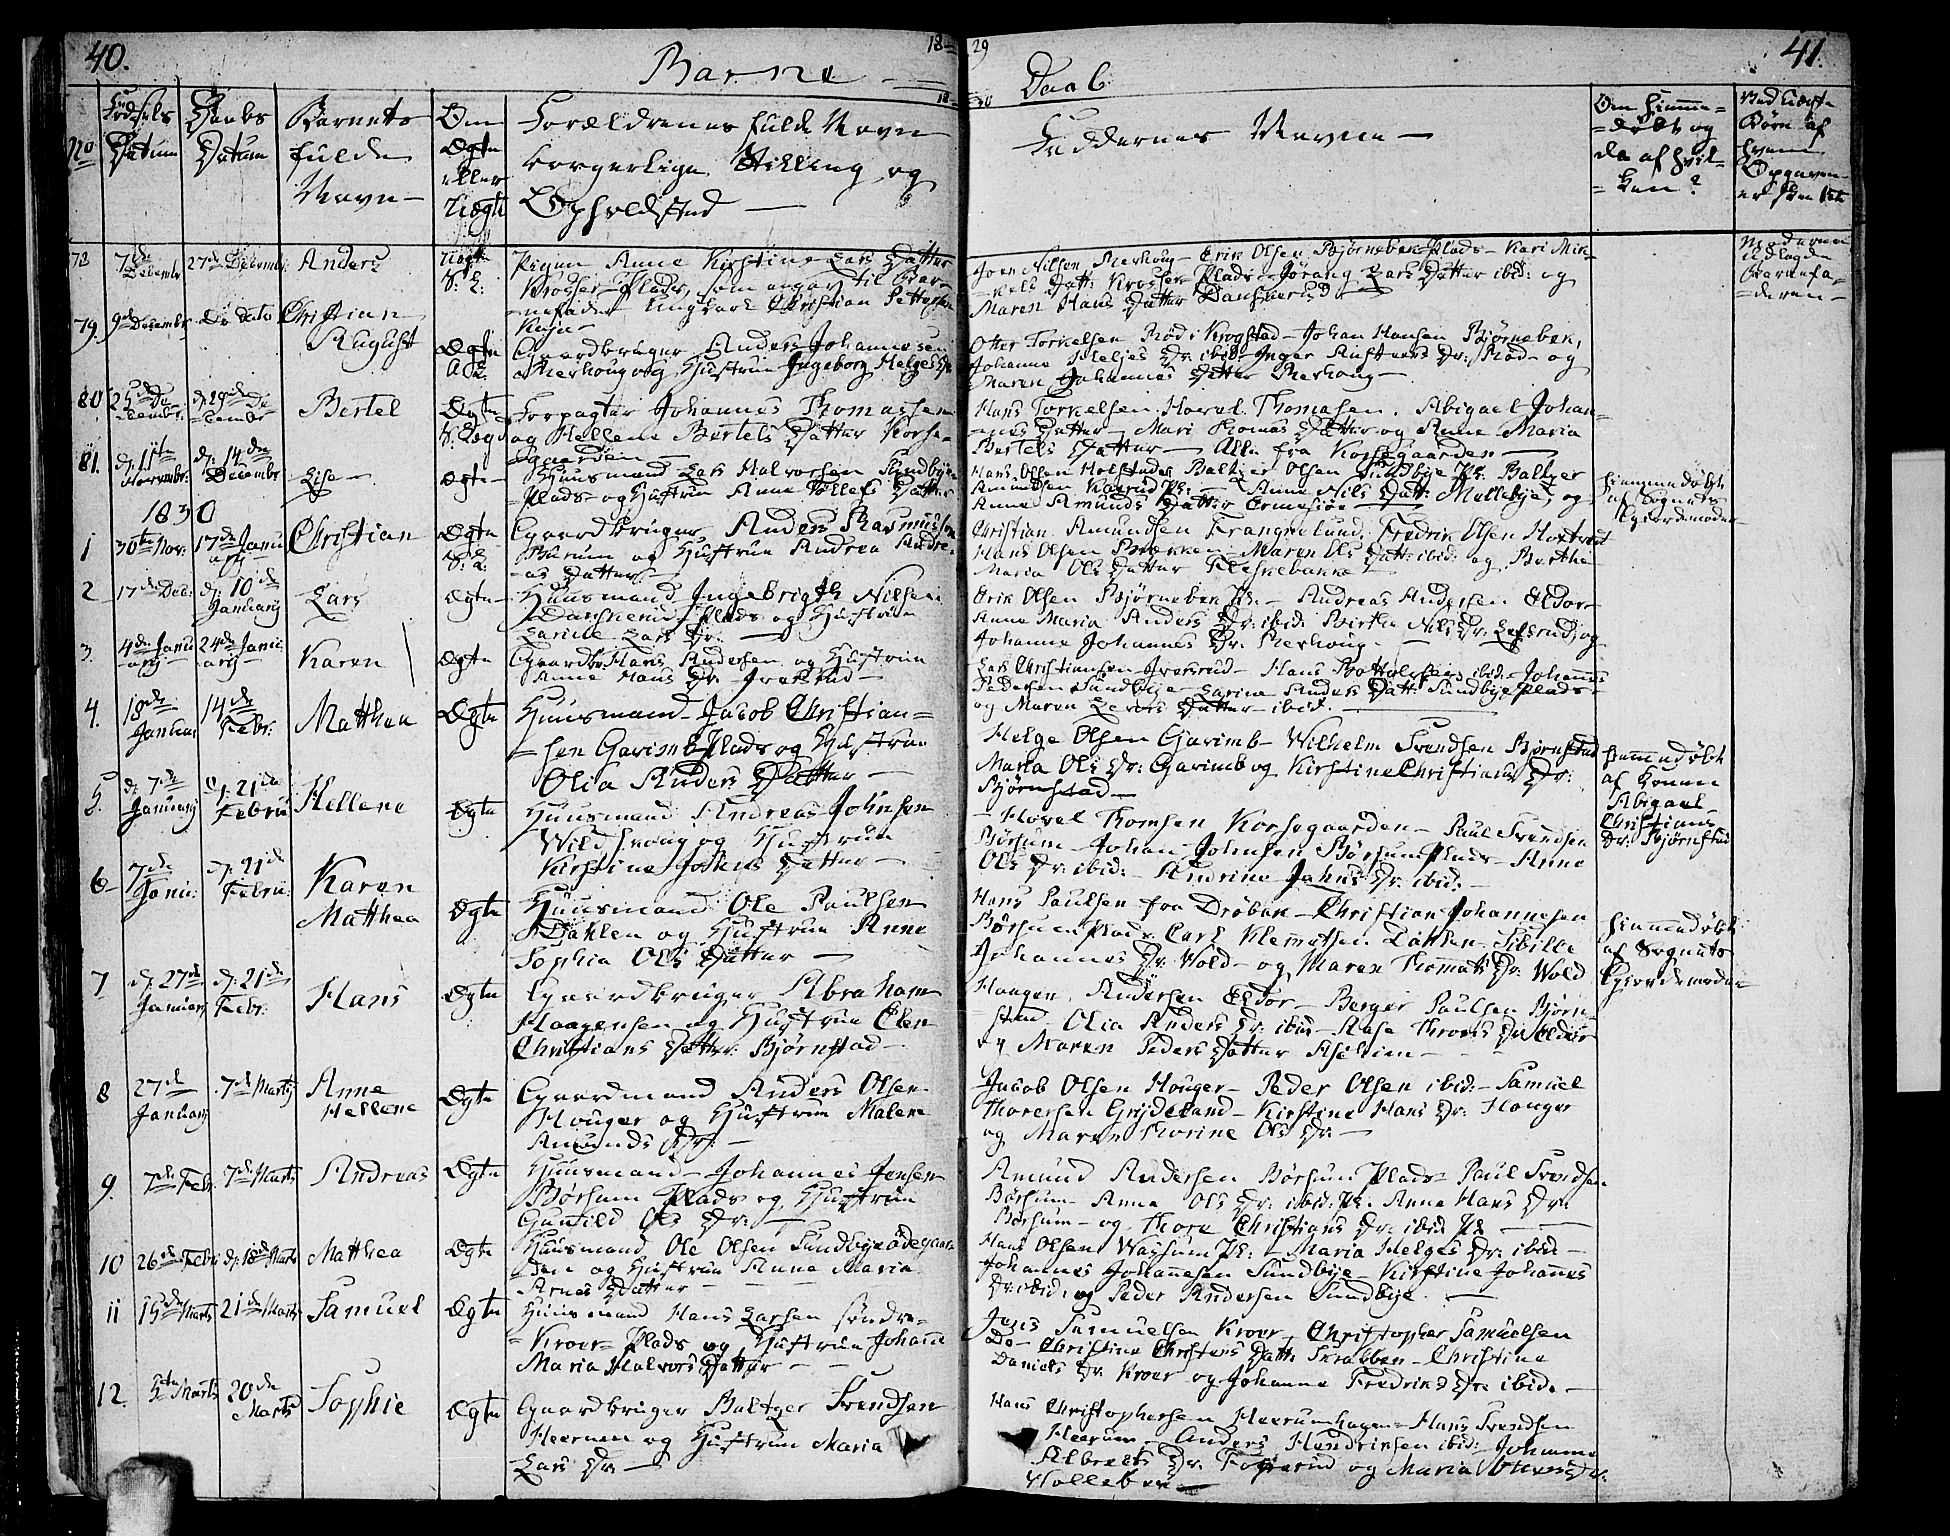 40.
Barne
18
29
Daab
41.
No
Fødsels
Datum
Daabs
Datum
Barnets
fulde
Navn
Om
Ægte
eller
Uægte
Forældrenes fulde Navn
borgerlige Stilling og
Opholdsted
Faddernes Navne
Om hjemme-
døbt og
da af hvil-
ken?
Ved Uægte
Børn af
hvem
Opgaven
er skeet
78
7de Decembr
27de Decembr:
Anders
Uægte
Pigen Anne Kirstine Lars Datter
Krosser Plads, som angav til Bar-
nefader Ungkarl Christian Pettersen
Joen Nilsen Merhoug - Erik Olsen Bjørnebek Plads - Kari Mik-
kels Datt: Krosser Plads - Jørand Lars Datter ibid: og
Maren Hans Datter Danskerud
Moderen
udlagde
Barnefa-
deren
79.
9de Decembr
Do Dato
Christian
August
Ægte
Gaardbruger Anders Johannesen
Merhoug og Hustrue Ingeborg Helges Dr
Otter Torkelsen Rød i Krogstad - Johan Hansen Bjørnebek,
Johanne Heljes Dr: ibid: - Inger Dr: Rød - og
Maren Johannes Datter Merhoug
80
25de De-
cembr:
d: 29de De-
cembr
Bertel
Ægte
Forpagter Johannes Thomassen
og Hellene Bertels Datter Korse-
gaarden
Hans Torkelsen. Hovel Thomasen. Abigael Johan-
nes Datter - Mari Thomas Datter og Anne Maria
Bertels Datter - Alle fra Korsegaarden
81.
d: 11te
Novembr:
d: 14de
Decembr
Lise
Ægte
Huusmand Lars Halvorsen Sundbye
Plads og Hustrue Anne Tollefs Datter
Hans Olsen Holstad Baltzer Olsen Sundbye Pl: Baltzer
Amundsen Pl: - Anne Nils Datt: Mellebye, og
Anne Amunds Datter
Hjemmedøbt
af Sognets
Gjordemoder
1830
1
30te Nov:
17de Janu
arij
Christian
Ægte
Gaardbruger Anders Rasmussen
og Hustrue Andrea Andre-
as Datter
Christian Amundsen Frangnelund. Fredrik Olsen Hoxtvedt
Hans Olsen Brækken - Maren Ols Datt: ibid: og Berthe
Maria Ols Datter
2
17de Dec:
d: 10de
Januarij
Lars
Ægte
Huusmand Ingebrigth Nilsen
Danskerud Plads og Hustrue
Larine Lars Dr:
Erik Olsen Bjørnebek Pl: - Andreas Andersen Eldor
Anne Maria Anders Dr: ibid: Birthe Nils Dr: og
Johanne Johannes Dr: Merhoug.
3.
4de Janu
arij
24de Janu
arij
Karen
Ægte
Gaardbr: Hans Andersen og Hustrue
Anne Hans Dr:
Lars Christiansen - Hans ibid: - Johannes
Pedersen Sundbye - Larine Anders Datt: Sundbye Plads
og Maren Datter ibid.
4.
18de
Januar
14de
Febr:
Matthea
Ægte
Huusmand Jacob Christian-
sen Garimb Plads og Hustrue
Olia Anders Datter
Helge Olsen Garimb - Wilhelm Svendsen Bjørnstad
Maria Ols Dr: Garimb og Kirstine Christians Dr:
Bjørnstad
Hjemmedøbt
af Konen
Abigael
Christians
Dr: Bjørnstad
5.
d: 7de
Januarij
d: 21de
Febru
Hellene
Ægte
Huusmand Andreas Johnsen
Wildhoug og Hustrue
Kirstine Datter
Hovel Thomsen Korsegaarden - Paul Svendsen
Børsum - Johan Johnsen Børsum Plads - Anne
Ols Dr: ibid: - Andrine Jahns Dr: ibid:
6
7de
Janu:
d: 21
Febru:
Karen
Matthea
Ægte
Huusmand Ole Paulsen
Dahlen og Hustrue Anne
Sophia Ols Datter
Hans Paulsen fra Drøbak - Christian Johannesen
Børsum Plads Carl Klemmetsen Dahlen - Sibille
Johannes Dr: Wold - og Maren Thommas Dr: Wold
Hjemmedøbt
af Sognets
Gjordemoder
7
d: 27de
Januarij
d: 21de
Febr:
Hans
Ægte
Gaardbruger Abraham
Haagensen og Hustrue Elen
Christians Datter: Bjørnstad
Haagen Andersen Eldor - Berger Paulsen Bjørn-
stad - Olia Anders Dr: ibid - Aase Dr: Eldor
og Maren Peders Datter
8
27de
Januarij
7de Martij
Anne
Hellene
Ægte
Gaardmand Anders Olsen
Houger og Hustrue Malene
Amunds Dr:
Jacob Olsen Houger - Peder Olsen ibid: - Samuel
Thoresen Grydeland - Kirstine Hans Dr: Houger
og Maren Thorine Ols Dr:
9.
7de Febr
7de Marts
Andreas
Ægte
Huusmand Johannes Jensen
Børsum Plads og Hustrue
Gunild Ols Dr:
Amund Andersen Børsum Plads - Paul Svendsen
Børsum - Anna Ols Dr: ibid: Pl. Anne Hans Dr:
Børsum - og Thore Christians Dr: ibid Pl
10
26de Febr
d: 18de Marts
Matthea
Ægte
Huusmand Ole Olsen Sundbyeødegaar-
den og Hustrue Anne Maria
Arnes Datter
Hans Olsen Waysum Pl: - Maria Helges Dr: ibid -
Johannes Johannesen Sundbye - Kirstine Johannes
Dr: ibid: og Peder Andersen Sundbye.
11
15de Marts
21de Marts
Samuel
Ægte
Huusmand Hans Larsen søndre
Kroer Plads og Hustrue Johanne
Maria Halvors Datter
Jens Samuelsen Kroer, Christopher Samuelsen
Christine Christens Datt: Skrabben - Christine
Daniels Dr Kroer og Johanne Fredriks Dr: ibid:
12.
5te Marts
20de
Marts
Sophie
Ægte
Gaardbruger Baltzer Svendsen
Heerum og Hustrue Maria
Lars Dr:
Hans Christophersen Heerumhagen - Hans Svendsen
Heerum - Anders Hendriksen ibid: - Johanne
Albrets Dr: Fosserud og Maria
Hollebek